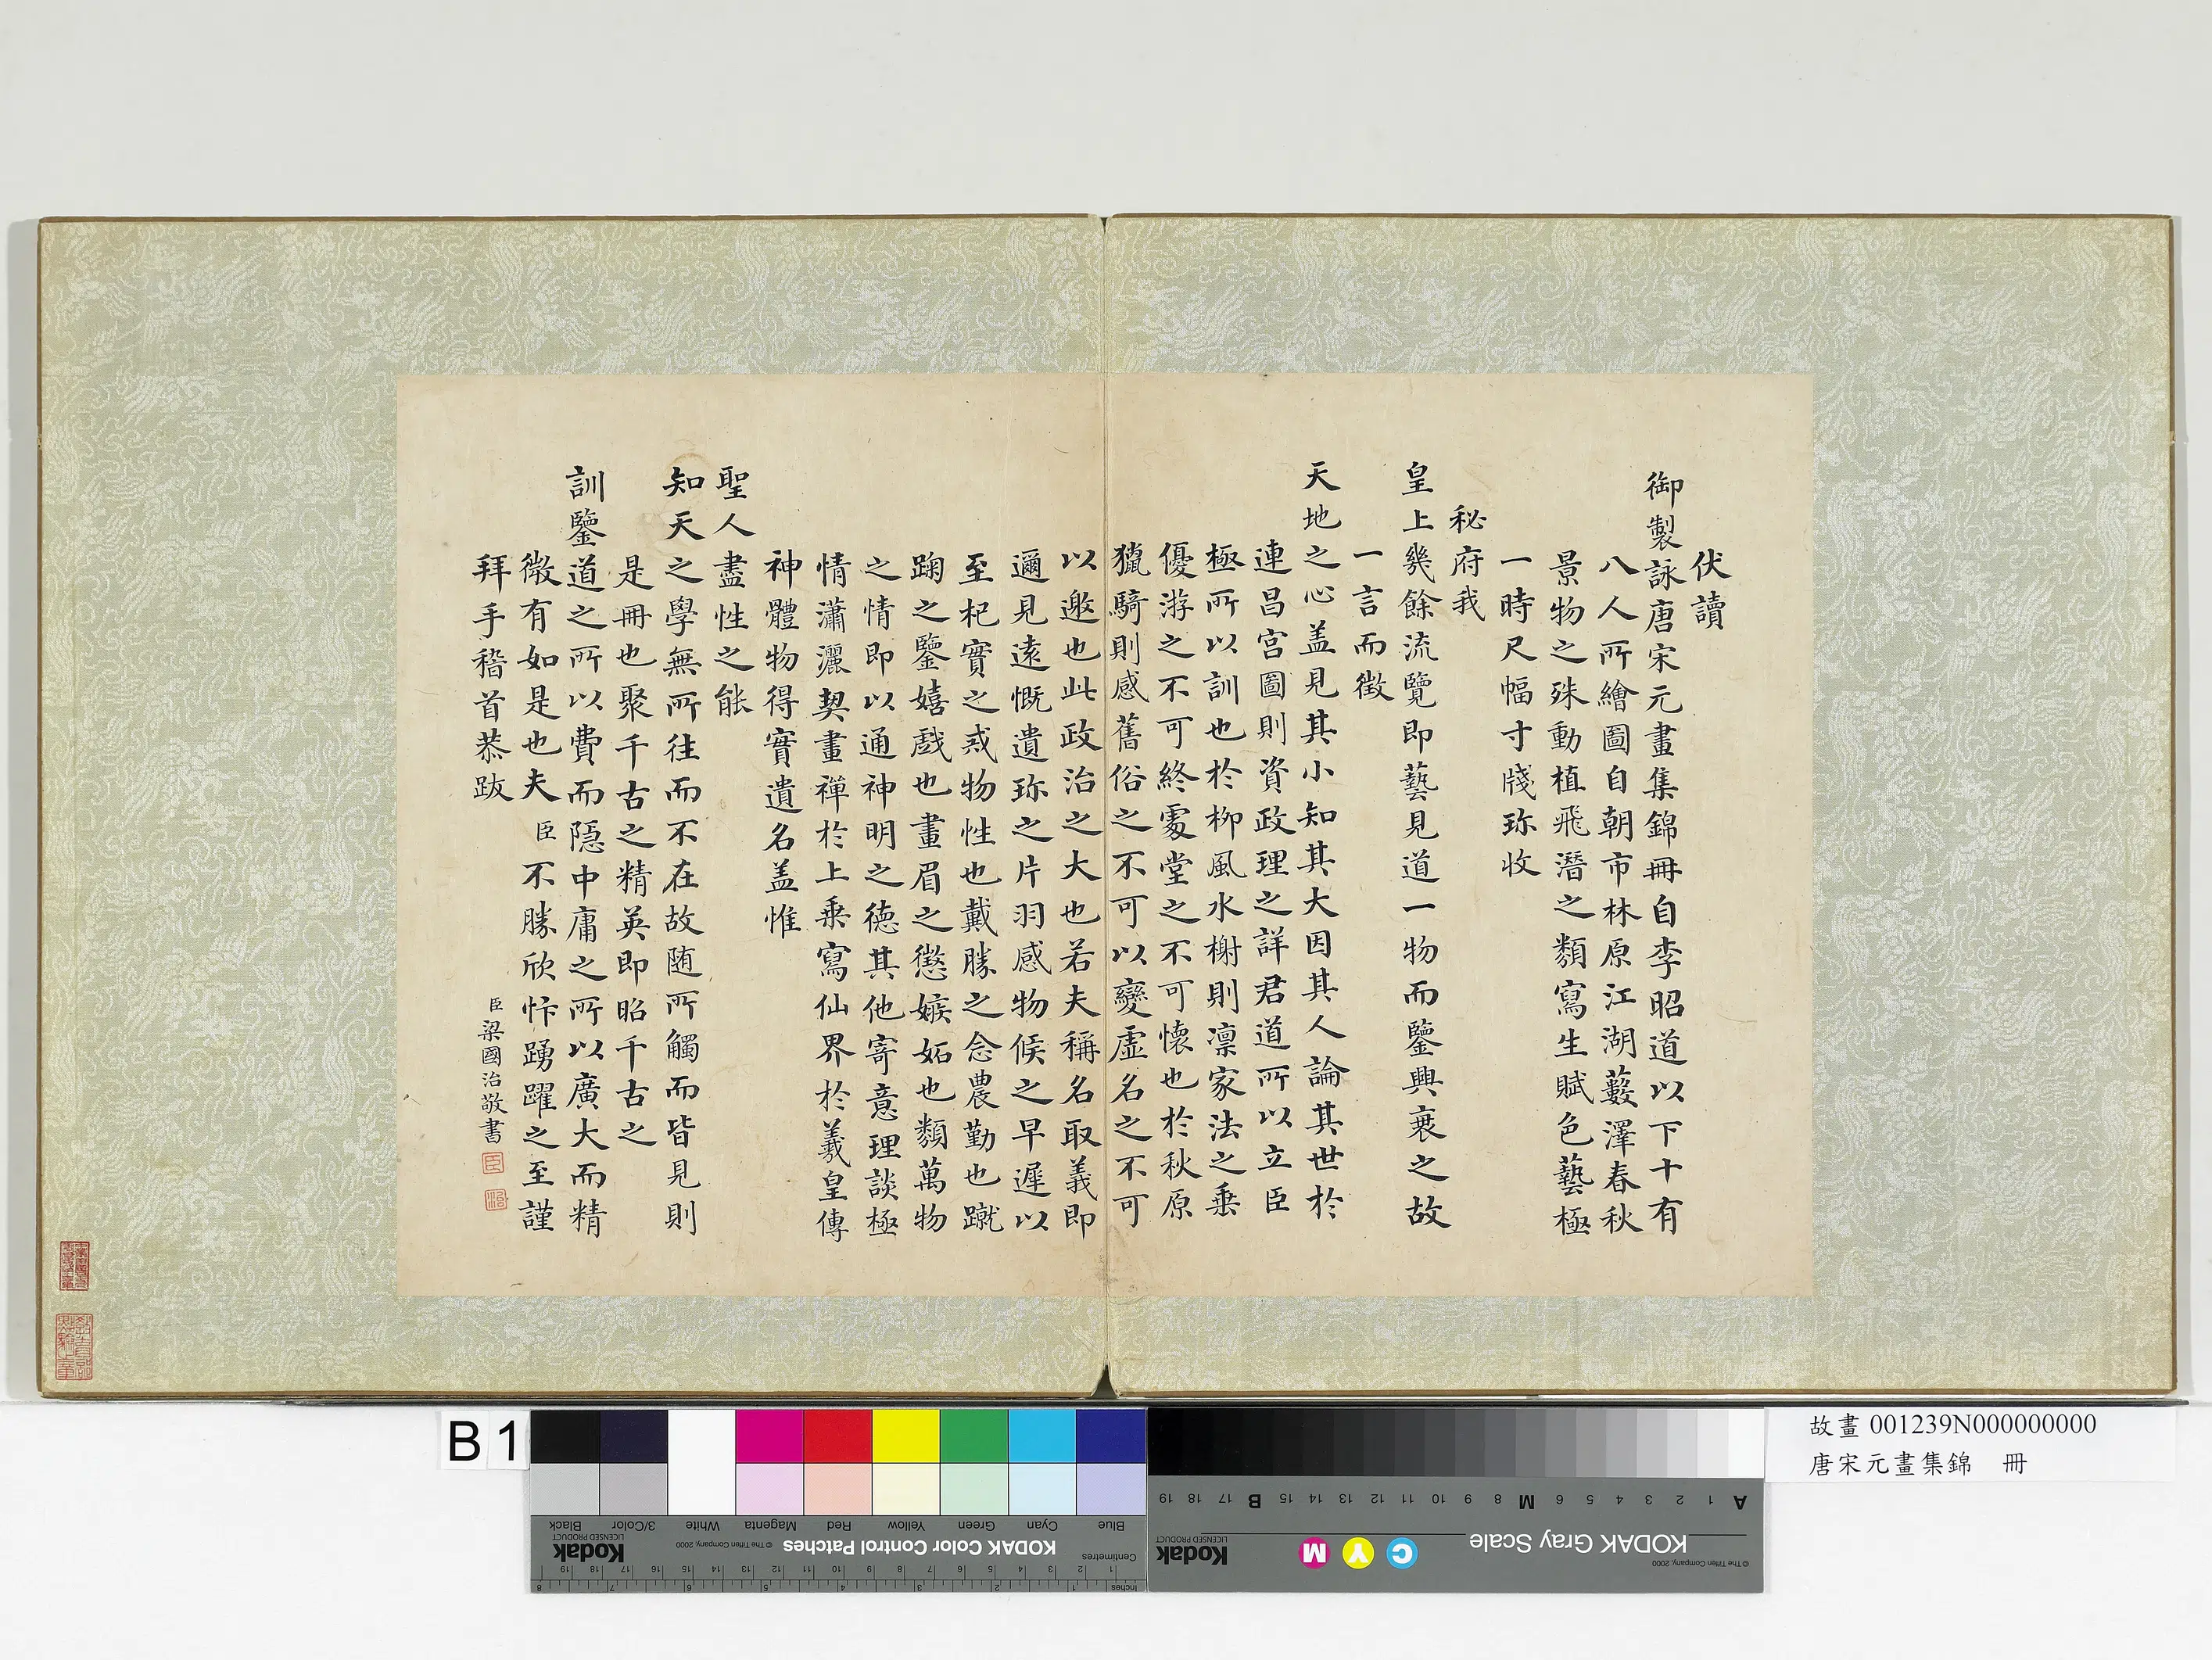 伏讀
御製詠唐宋元畫集錦冊自李昭道以下十有
八人所繪圖自朝市林原江湖藪澤春秋
景物之殊動植飛潛之類寫生賦色藝極
一時尺幅寸牋珎收
秘府我
皇上幾餘流覽即藝見道一物而鑒興衰之故
一言而徵
天地之心盖見其小知其大因其人論其世於
連昌宮圖則資政理之詳君道所以立臣
極所以訓也於柳風水榭則凛家法之乗
優游之不可終䖏堂之不可懷也於秋原
獵騎則感舊俗之不可以變虛名之不可
以邀也此政治之大也若夫稱名取義即
邇見遠慨遺珎之片羽感物候之早遲以
至杞實之戒物性也戴勝之念農勤也蹴
踘之鑒嬉戲也畫眉之懲嫉妬也類萬物
之情即以通神明之德其他寄意理談極
情瀟灑契畫禪於上乗寫仙界於羲皇傳
神體物得實遺名盖惟
聖人盡性之能
知天之學無所往而不在故随所觸而皆見則
是冊也聚千古之精英即昭千古之
訓鑒道之所以費而隱中庸之所以廣大而精
微有如是也夫臣不勝欣忭踴躍之至謹
拜手稽首恭跋
臣梁國治敬書
臣
治
B 1
故畫 001239N000000000
唐宋元畫集錦 冊
Blue Cyan Green Yellow Red Magenta White 3/Color Black
KODAK Color Control Patches
© The Tiffen Company, 2000
Kodak
LICENSED PRODUCT
Centimetres
1 2 3 4 5 6 7 8 9 10 11 12 13 14 15 16 17 18 19
Inches
1 2 3 4 5 6 7 8
A 1 2 3 4 5 6 M 8 9 10 11 12 13 14 15 B 17 18 19
KODAK Gray Scale
C Y M
Kodak
LICENSED PRODUCT
© The Tiffen Company, 2000